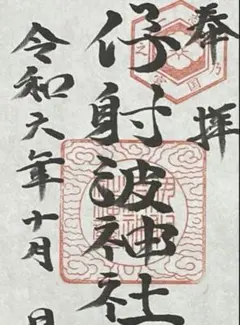 奉拝
伊射波神社
令和六年十月 日